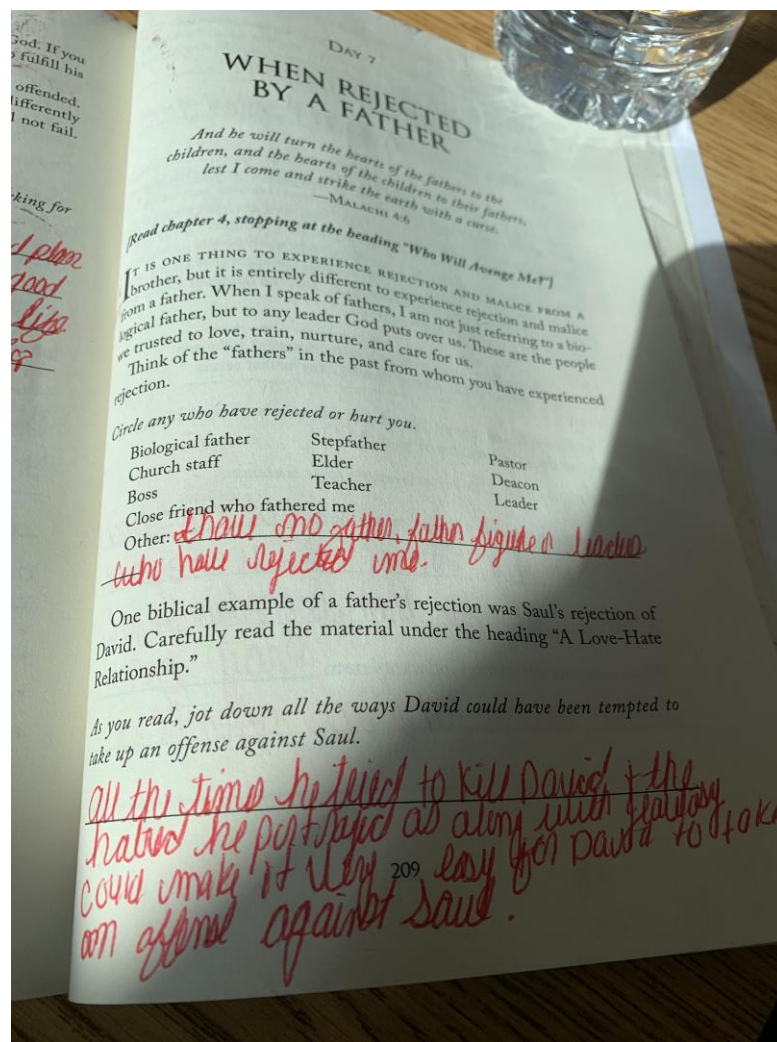 God. If you
fulfill his
offended.
differently
not fail.
king for
plan
good
life
DAY 7
WHEN REJECTED
BY A FATHER
And he will turn the hearts of the fathers to the
children, and the hearts of the children to their fathers,
lest I come and strike the earth with a curse.
—MALACHI 4:6
[Read chapter 4, stopping at the heading "Who Will Avenge Me?"]
IT IS ONE THING TO EXPERIENCE REJECTION AND MALICE FROM A
brother, but it is entirely different to experience rejection and malice
from a father. When I speak of fathers, I am not just referring to a bio-
logical father, but to any leader God puts over us. These are the people
we trusted to love, train, nurture, and care for us.
Think of the “fathers” in the past from whom you have experienced
rejection.
Circle any who have rejected or hurt you.
Biological father Stepfather Pastor
Church staff Elder Deacon
Boss Teacher Leader
Close friend who fathered me
Other: I have no father, father figure or leader
who have rejected me.
One biblical example of a father’s rejection was Saul’s rejection of
David. Carefully read the material under the heading “A Love-Hate
Relationship.”
As you read, jot down all the ways David could have been tempted to
take up an offense against Saul.
all the times he tried to kill David & the
hatred he portrayed as along with jealousy
could make it very easy for David to take
an offense against Saul.
209